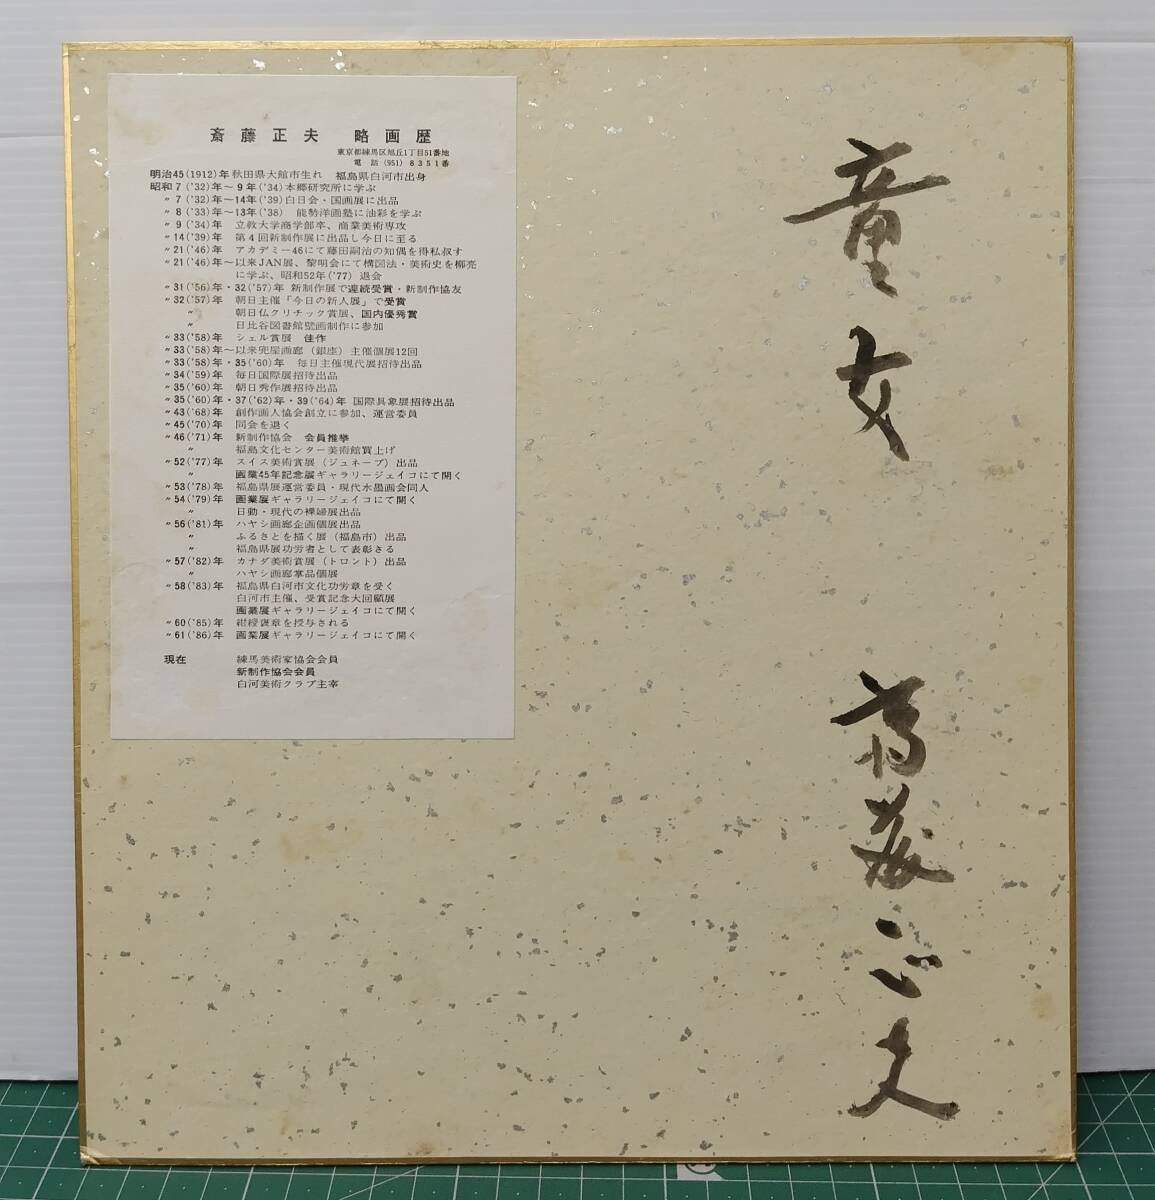 童女
斎藤正夫
斎藤正夫 略画歴
東京都練馬区旭丘1丁目51番地
電話(951)8351番
明治45(1912)年 秋田県大館市生れ 福島県白河市出身
昭和7('32)年~9年('34)本郷研究所に学ぶ
〃7('32)年~14年('39)白日会・国画展に出品
〃8('33)年~13年('38) 能勢洋画塾に油彩を学ぶ
〃9('34)年 立教大学商学部卒、商業美術専攻
〃14('39)年 第4回新制作展に出品し今日に至る
〃21('46)年 アカデミー46にて藤田嗣治の知偶を得私叔す
〃21('46)年~以来JAN展、黎明会にて構図法・美術史を柳亮
に学ぶ、昭和52年('77)退会
〃31('56)年・32('57)年 新制作展で連続受賞・新制作協友
〃32('57)年 朝日主催「今日の新人展」で受賞
〃 朝日仏クリチック賞展、国内優秀賞
〃 日比谷図書館壁画制作に参加
〃33('58)年 シェル賞展 佳作
〃33('58)年~以来兜屋画廊(銀座)主催個展12回
〃33('58)年・35('60)年 毎日主催現代展招待出品
〃34('59)年 毎日国際展招待出品
〃35('60)年 朝日秀作展招待出品
〃35('60)年・37('62)年・39('64)年 国際具象展招待出品
〃43('68)年 創作画人協会創立に参加、運営委員
〃45('70)年 同会を退く
〃46('71)年 新制作協会 会員推挙
〃 福島文化センター美術館買上げ
〃52('77)年 スイス美術賞展(ジュネーブ)出品
〃 画業45年記念展ギャラリージェイコにて開く
〃53('78)年 福島県展運営委員・現代水墨画会同人
〃54('79)年 画業展ギャラリージェイコにて開く
〃 日動・現代の裸婦展出品
〃56('81)年 ハヤシ画廊企画個展出品
〃 ふるさとを描く展(福島市)出品
〃 福島県展功労者として表彰さる
〃57('82)年 カナダ美術賞展(トロント)出品
〃 ハヤシ画廊掌品個展
〃58('83)年 福島県白河市文化功労章を受く
白河市主催、受賞記念大回顧展
画業展ギャラリージェイコにて開く
〃60('85)年 紺綬褒章を授与される
〃61('86)年 画業展ギャラリージェイコにて開く
現在 練馬美術家協会会員
新制作協会会員
白河美術クラブ主宰